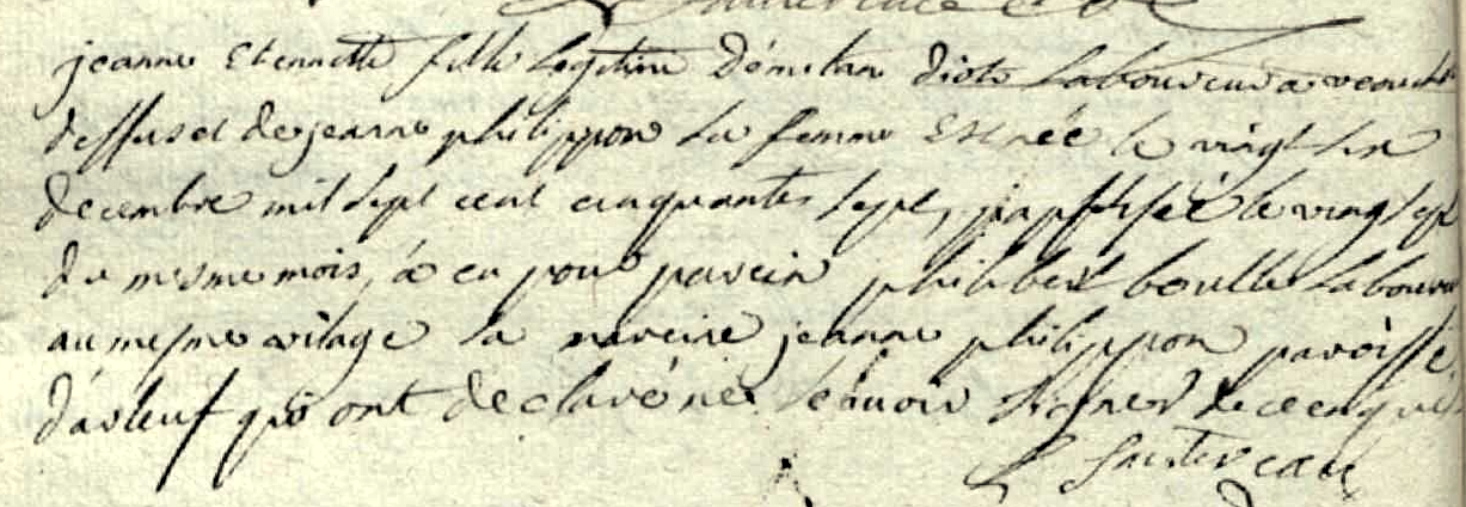 jeanne Etiennette fille legitime D'émilan diot Laboureur a
dessus et de jeanne philippon sa femme Est née le vingt six
decembre mil sept cent cinquante sept, baptisée le vingt sept
du mesme mois, à eu pour parein philibert boulle Laboureur
au mesme vilage la mareine jeanne philippon paroisse
d'arleuf qui ont declaré ne scauoir signer de ce enquis
Sautereau